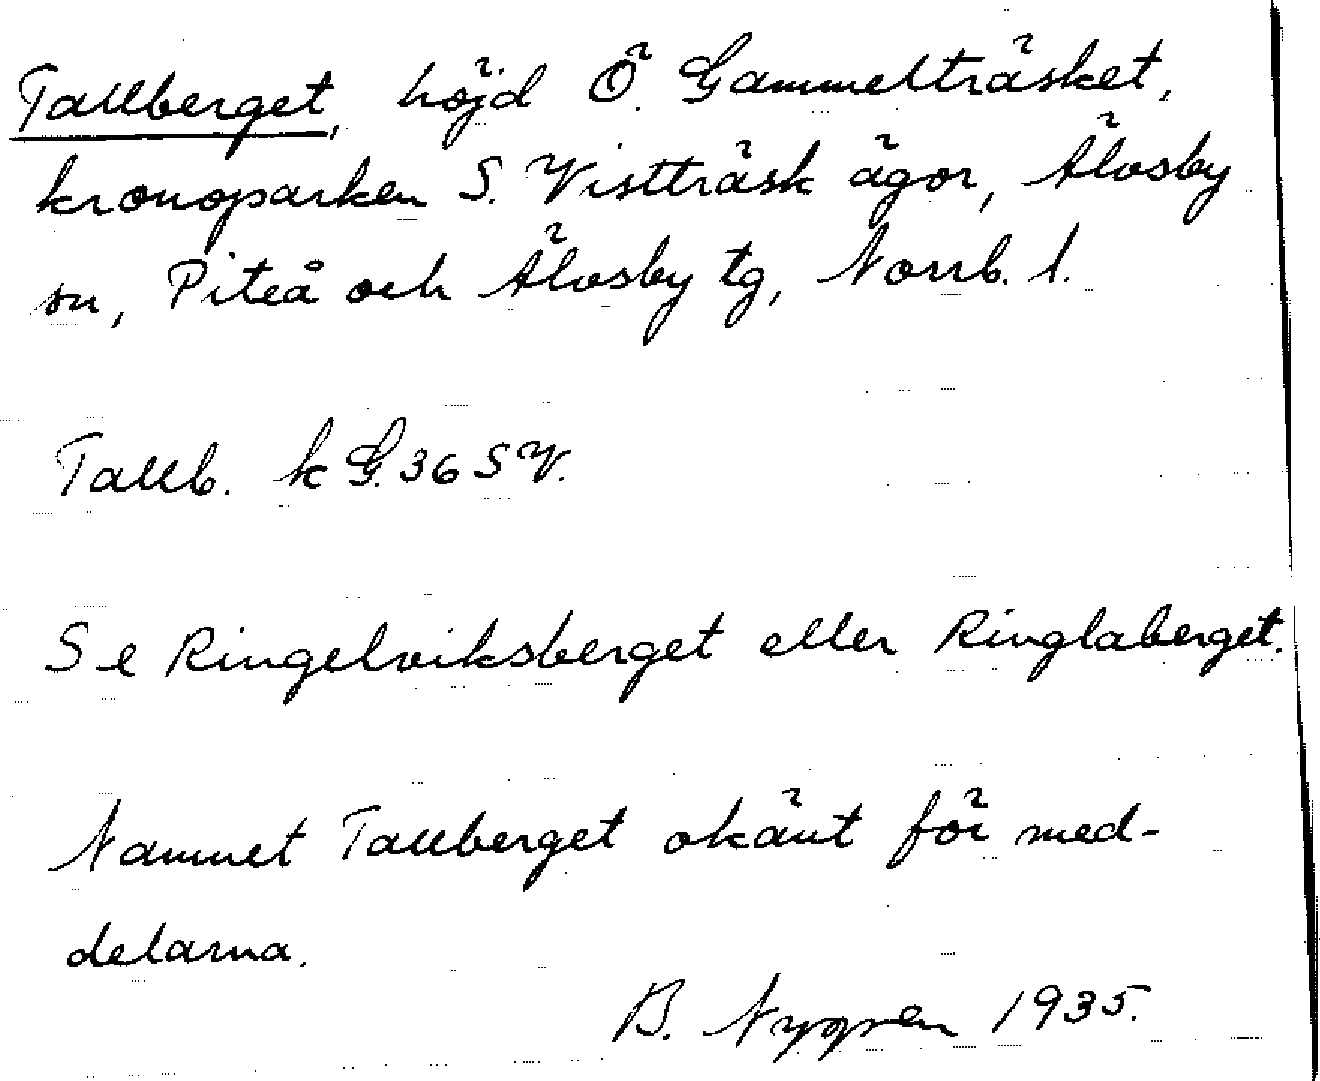 Tallberget, höjd Ö. Gammelträsket,
kronoparken S. Vistträsk ägor, Älvsby
sn, Piteå och Älvsby tg, Norrb. l.
Tallb. k G. 36 SV.
Se Ringelviksberget eller Ringlaberget.
Namnet Tallberget okänt för med-
delarna.
B. Nygren 1935.